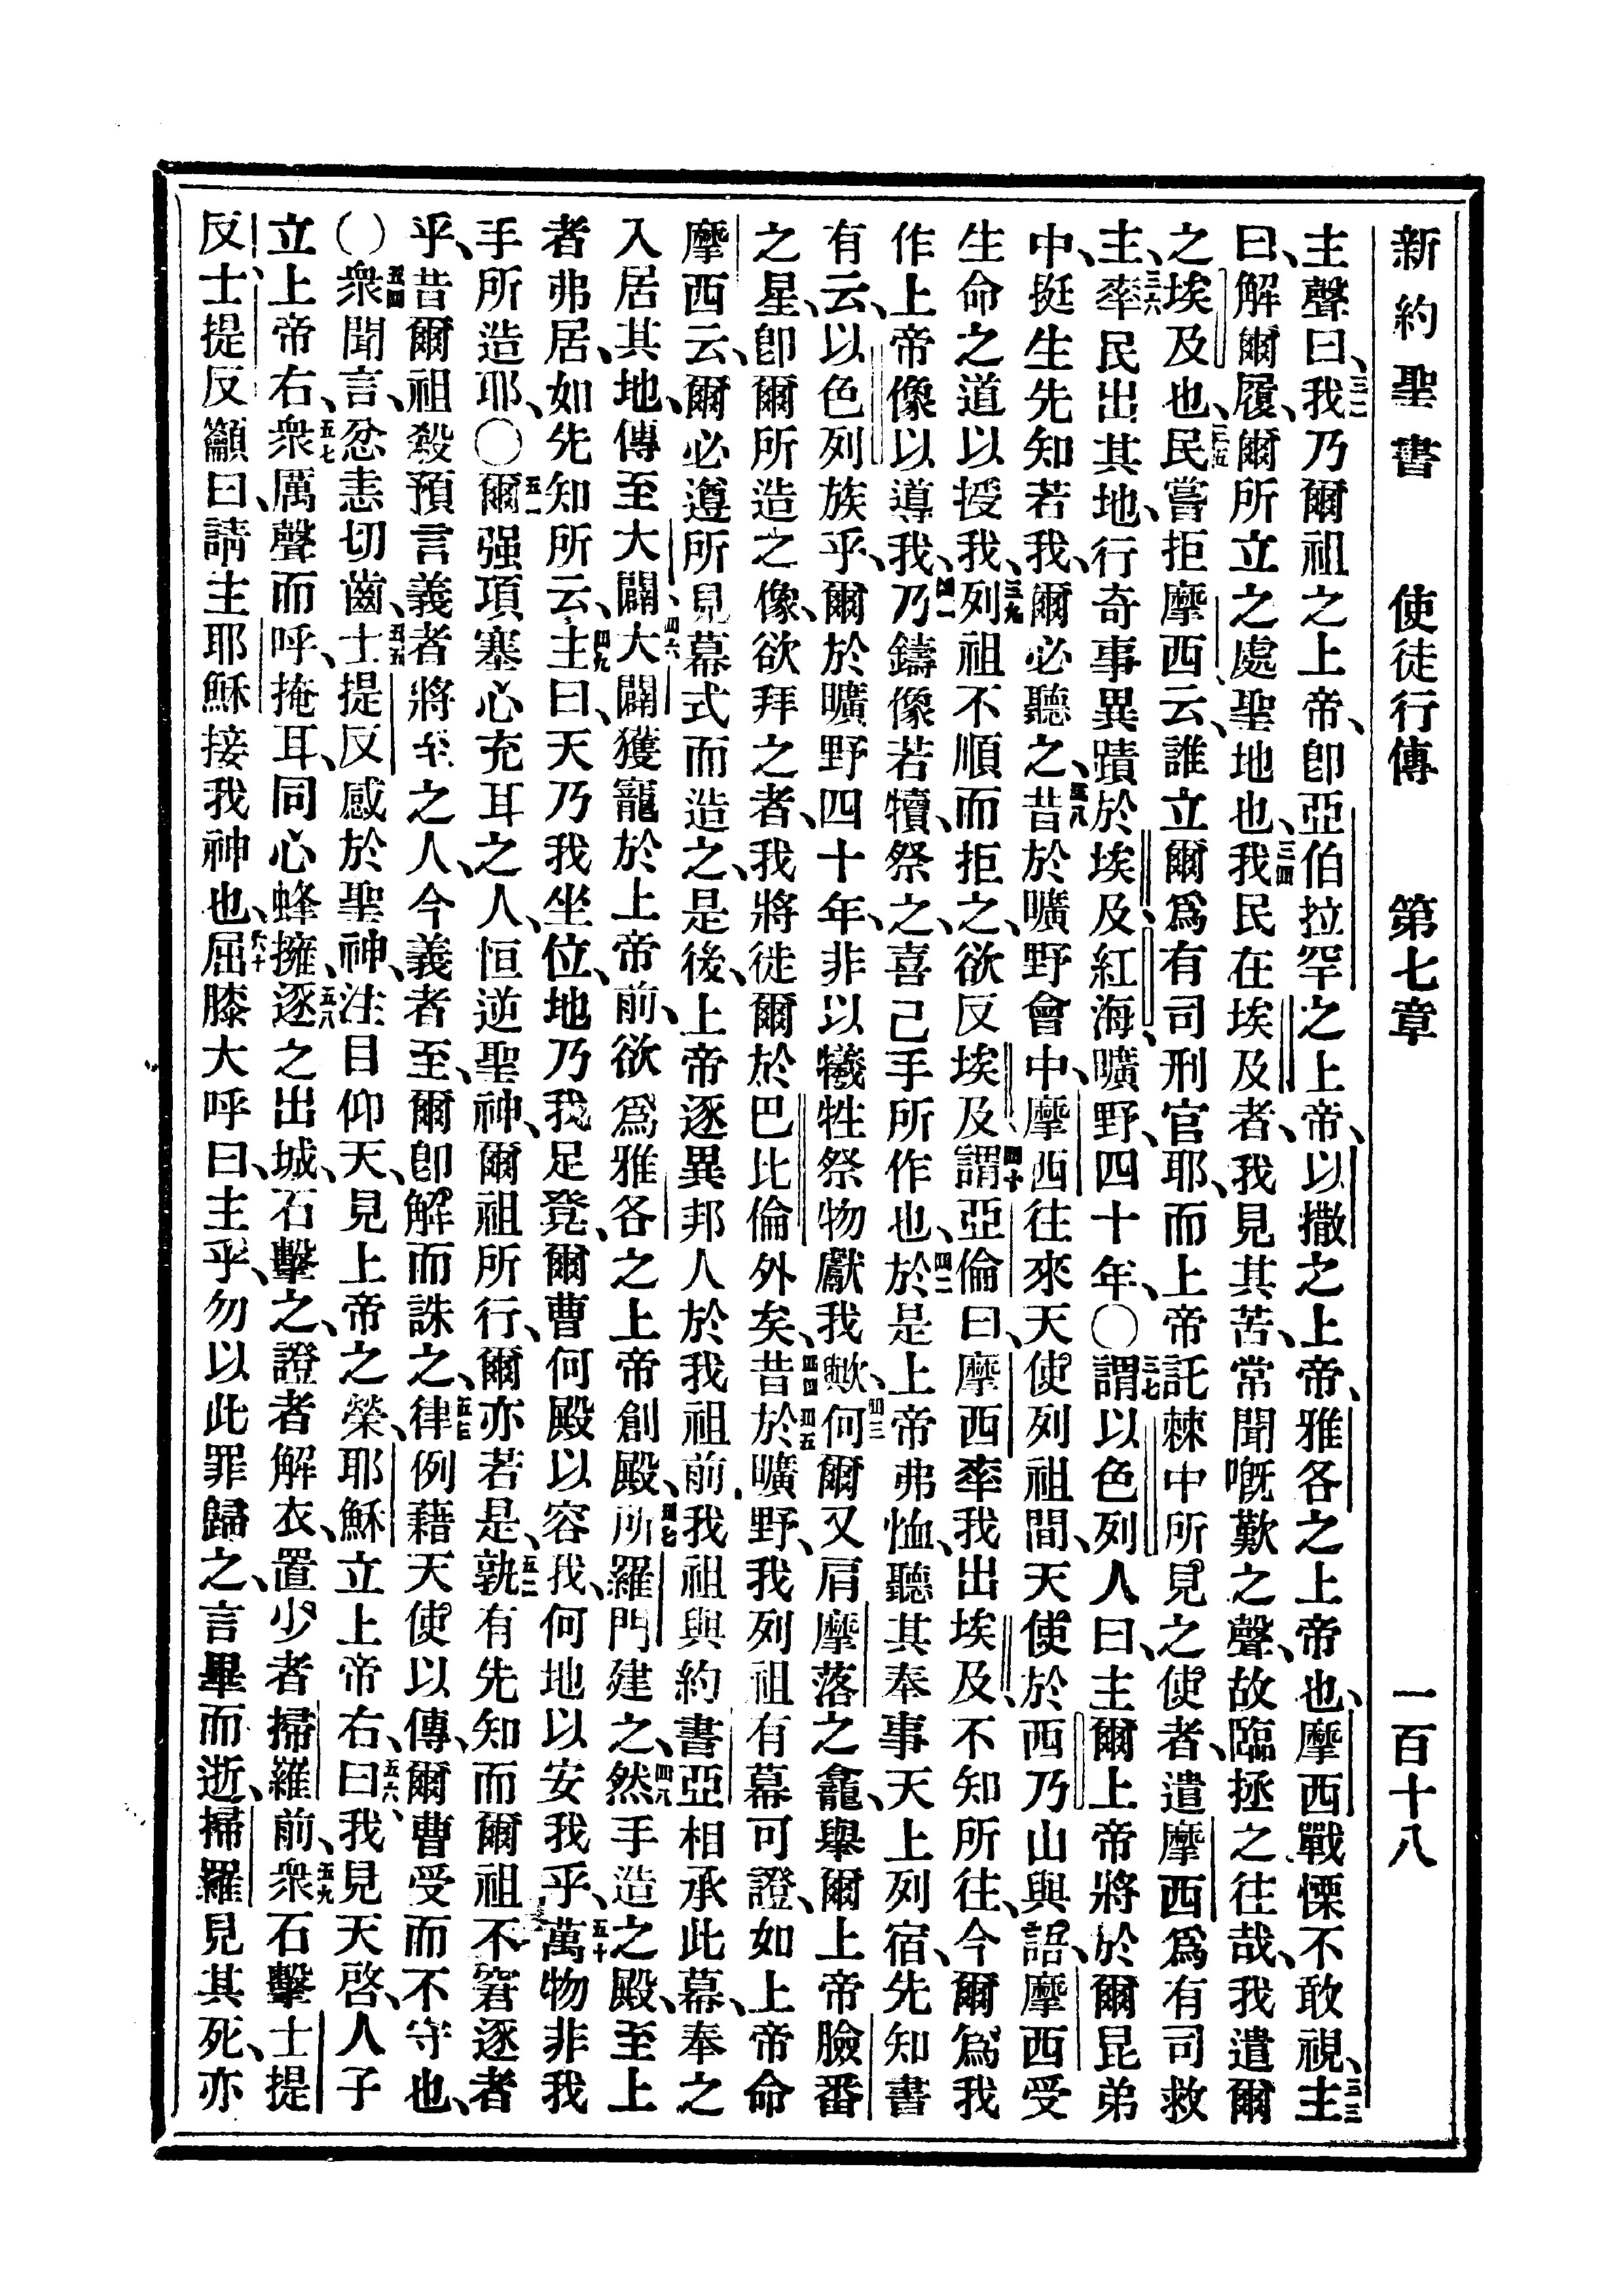 新約聖書 使徒行傳 第七章 一百十八
主聲曰、三二我乃爾祖之上帝、卽亞伯拉罕之上帝、以撒之上帝、雅各之上帝也、摩西戰慄不敢視、三三主
曰、解爾履、爾所立之處聖地也、三四我民在埃及者、我見其苦、常聞嘅歎之聲、故臨拯之、往哉、我遣爾
之埃及也、三五民嘗拒摩西云、誰立爾爲有司刑官耶、而上帝託棘中所見之使者、遣摩西爲有司救
主、三六率民出其地、行奇事異蹟於埃及紅海、曠野、四十年、〇三七謂以色列人曰、主爾上帝將於爾昆弟
中、挺生先知若我、爾必聽之、三八昔於曠野會中、摩西往來天使列祖間、天使於西乃山與語、摩西受
生命之道以授我、三九列祖不順而拒之、欲反埃及、四十謂亞倫曰、摩西率我出埃及、不知所往、今爾爲我
作上帝像以導我、四一乃鑄像若犢、祭之、喜己手所作也、四二於是上帝弗恤、聽其奉事天上列宿、先知書
有云、以色列族乎、爾於曠野四十年、非以犧牲祭物獻我歟、四三何爾又肩摩落之龕、舉爾上帝臉番
之星、卽爾所造之像、欲拜之者、我將徙爾於巴比倫外矣、四四昔於曠野、我列祖有幕可證、如上帝命
摩西云、爾必遵所見幕式而造之、四五是後、上帝逐異邦人於我祖前、我祖與約書亞相承此幕、奉之
入居其地、傳至大闢、四六大闢獲寵於上帝前、欲爲雅各之上帝創殿、四七所羅門建之、四八然手造之殿、至上
者弗居、如先知所云、四九主曰、天乃我坐位、地乃我足凳、爾曹何殿以容我、何地以安我乎、五十萬物非我
手所造耶、〇五一爾强項塞心充耳之人、恒逆聖神、爾祖所行、爾亦若是、五二孰有先知而爾祖不窘逐者
乎、昔爾祖殺預言義者將至之人、今義者至、爾卽解而誅之、五三律例藉天使以傳、爾曹受而不守也、
〇五四衆聞言、忿恚切齒、五五士提反感於聖神、注目仰天、見上帝之榮、耶穌立上帝右、五六曰、我見天啓、人子
立上帝右、五七衆厲聲而呼、掩耳、同心蜂擁、五八逐之出城、石擊之、證者解衣、置少者掃羅前、五九衆石擊士提
反、士提反籲曰、請主耶穌接我神也、六十屈膝大呼曰、主乎、勿以此罪歸之、言畢而逝、掃羅見其死、亦